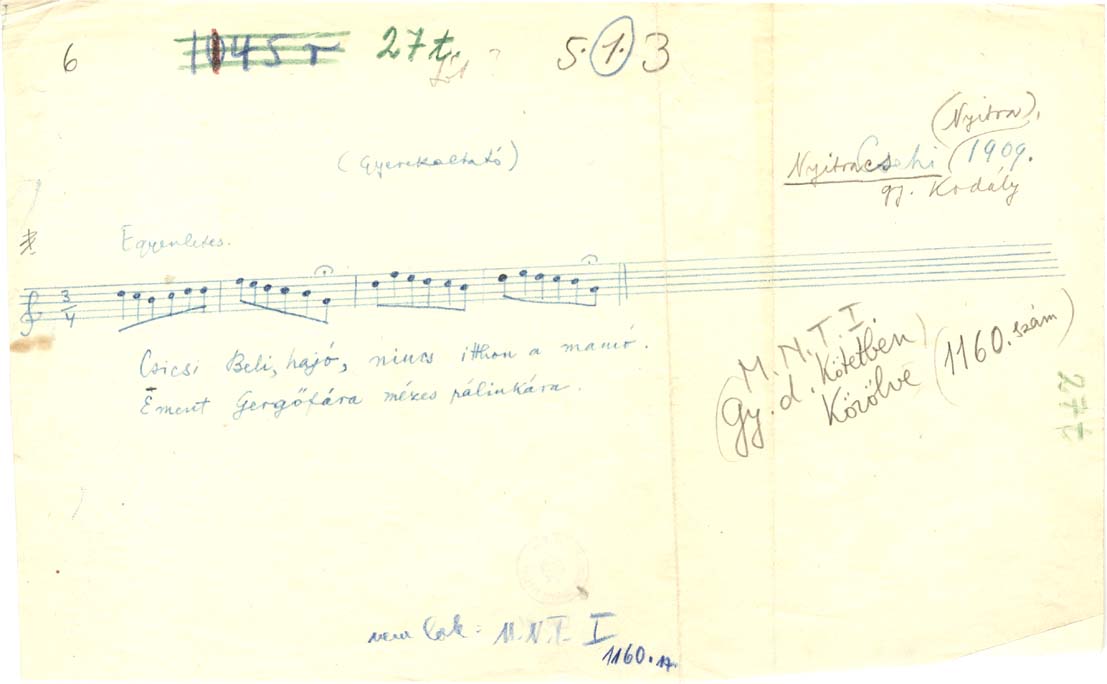 6 1045 r 27 t. 5.1.3
(Nyitra),
(Gyerekaltató)
NyitraCsehi (1909.
gy. Kodály
Egyenletes.
3
4
Csicsi Beli, hajó, nincs itthon a mamó.
Ēment Gergőfára mézes pálinkára.
M. N. T. I.
(Gy. d. Kötetben)
Közölve (1160. szám)
27 t
M.N.T. I
1160. 17.